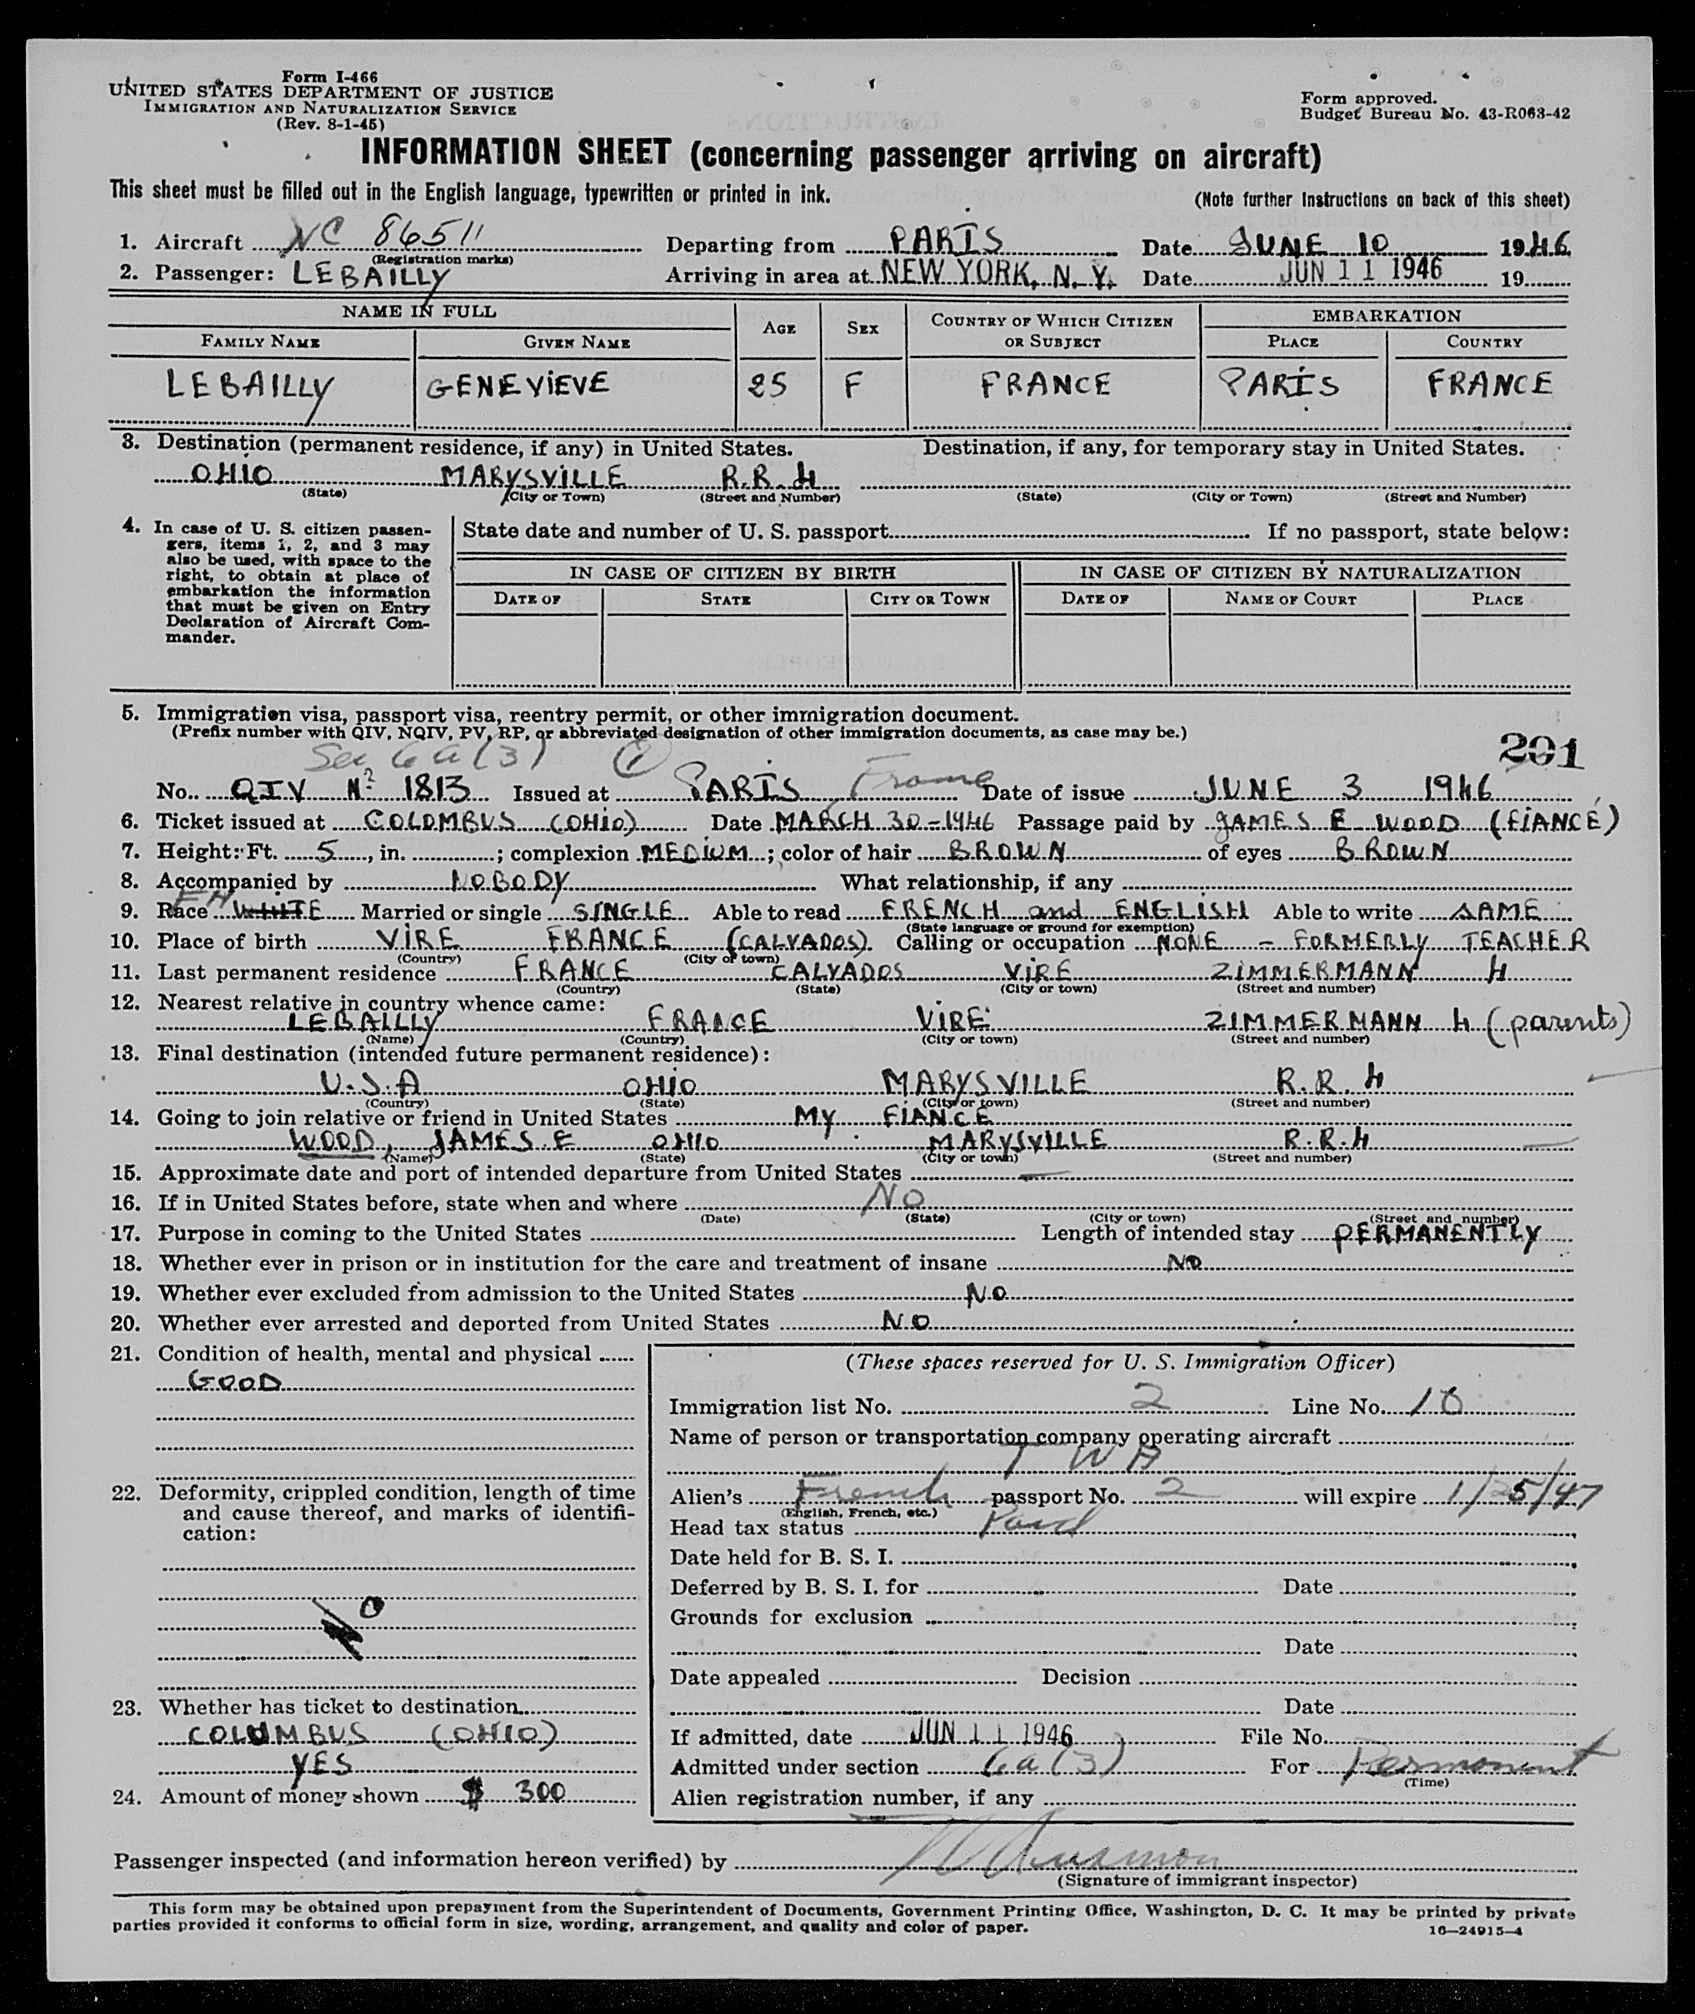 Form I-466
UNITED STATES DEPARTMENT OF JUSTICE
IMMIGRATION AND NATURALIZATION SERVICE
(Rev. 8-1-45)
Form approved.
Budget Bureau No. 43-R063-42
INFORMATION SHEET (concerning passenger arriving on aircraft)
This sheet must be filled out in the English language, typewritten or printed in ink.
(Note further Instructions on back of this sheet)
1. Aircraft NC 86511 Departing from PARIS Date JUNE 10 1946
(Registration marks)
2. Passenger: LEBAILLY Arriving in area at NEW YORK, N. Y. Date JUN 11 1946 19
NAME IN FULL AGE SEX COUNTRY OF WHICH CITIZEN OR SUBJECT EMBARKATION
FAMILY NAME GIVEN NAME PLACE COUNTRY
LEBAILLY GENEVIEVE 25 F FRANCE PARIS FRANCE
3. Destination (permanent residence, if any) in United States. Destination, if any, for temporary stay in United States.
OHIO MARYSVILLE R.R. 4
(State) (City or Town) (Street and Number) (State) (City or Town) (Street and Number)
4. In case of U. S. citizen passen-
gers, items 1, 2, and 3 may
also be used, with space to the
right, to obtain at place of
embarkation the information
that must be given on Entry
Declaration of Aircraft Com-
mander.
State date and number of U. S. passport If no passport, state below:
IN CASE OF CITIZEN BY BIRTH IN CASE OF CITIZEN BY NATURALIZATION
DATE OF STATE CITY OR TOWN DATE OF NAME OF COURT PLACE
5. Immigration visa, passport visa, reentry permit, or other immigration document.
(Prefix number with QIV, NQIV, PV, RP, or abbreviated designation of other immigration documents, as case may be.)
Sec 6a(3) 201
No. QIV Nº 1813 Issued at PARIS France Date of issue JUNE 3 1946
6. Ticket issued at COLOMBUS (OHIO) Date MARCH 30-1946 Passage paid by JAMES E WOOD (FIANCE)
7. Height: Ft. 5, in. ; complexion MEDIUM; color of hair BROWN of eyes BROWN
8. Accompanied by NOBODY What relationship, if any
9. Race WHITE Married or single SINGLE Able to read FRENCH and ENGLISH Able to write SAME
(State language or ground for exemption)
10. Place of birth VIRE FRANCE (CALVADOS). Calling or occupation NONE - FORMERLY TEACHER
(Country) (City or town)
11. Last permanent residence FRANCE CALVADOS VIRE ZIMMERMANN 4
(Country) (State) (City or town) (Street and number)
12. Nearest relative in country whence came:
LEBAILLY FRANCE VIRE ZIMMERMANN 4 (parents)
(Name) (Country) (City or town) (Street and number)
13. Final destination (intended future permanent residence):
U.S.A OHIO MARYSVILLE R.R. 4
(Country) (State) (City or town) (Street and number)
14. Going to join relative or friend in United States MY FIANCE
WOOD, JAMES E OHIO MARYSVILLE R.R. 4
(Name) (State) (City or town) (Street and number)
15. Approximate date and port of intended departure from United States —
16. If in United States before, state when and where NO
(Date) (State) (City or town) (Street and number)
17. Purpose in coming to the United States Length of intended stay PERMANENTLY
18. Whether ever in prison or in institution for the care and treatment of insane NO
19. Whether ever excluded from admission to the United States NO
20. Whether ever arrested and deported from United States NO
21. Condition of health, mental and physical
GOOD
22. Deformity, crippled condition, length of time
and cause thereof, and marks of identifi-
cation:
NO
23. Whether has ticket to destination
COLUMBUS (OHIO)
YES
24. Amount of money shown $ 300
(These spaces reserved for U. S. Immigration Officer)
Immigration list No. 2 Line No. 10
Name of person or transportation company operating aircraft
T W A
Alien's French passport No. 2 will expire 1/25/47
(English, French, etc.)
Head tax status Paid
Date held for B. S. I.
Deferred by B. S. I. for Date
Grounds for exclusion
Date
Date appealed Decision
Date
If admitted, date JUN 11 1946 File No.
Admitted under section 6a(3) For Permanent
(Time)
Alien registration number, if any
Passenger inspected (and information hereon verified) by
(Signature of immigrant inspector)
This form may be obtained upon prepayment from the Superintendent of Documents, Government Printing Office, Washington, D. C. It may be printed by private
parties provided it conforms to official form in size, wording, arrangement, and quality and color of paper.
16—24915-4